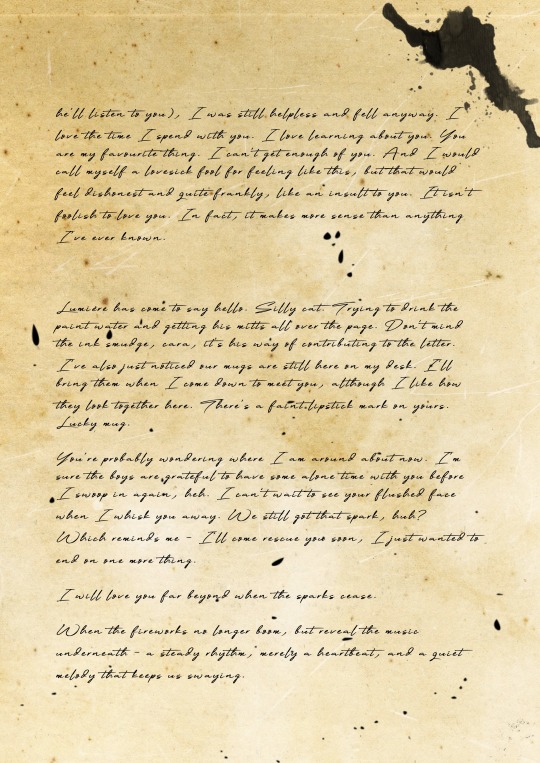 he'll listen to you), I was still helpless and fell anyway. I
love the time I spend with you. I love learning about you. You
are my favourite thing. I can't get enough of you. And I would
call myself a lovesick fool for feeling like this, but that would
feel dishonest and quite frankly, like an insult to you. It isn't
foolish to love you. In fact, it makes more sense than anything
I've ever known.
Lumière has come to say hello. Silly cat. Trying to drink the
paint water and getting his mitts all over the page. Don't mind
the ink smudge, cara, it's his way of contributing to the letter.
I've also just noticed our mugs are still here on my desk. I'll
bring them when I come down to meet you, although I like how
they look together here. There's a faint lipstick mark on yours.
Lucky mug.
You're probably wondering where I am around about now. I'm
sure the boys are grateful to have some alone time with you before
I swoop in again, heh. I can't wait to see your flushed face
when I whisk you away. We still got that spark, huh?
Which reminds me - I'll come rescue you soon, I just wanted to
end on one more thing.
I will love you far beyond when the sparks cease.
When the fireworks no longer boom, but reveal the music
underneath - a steady rhythm, merely a heartbeat, and a quiet
melody that keeps us swaying.